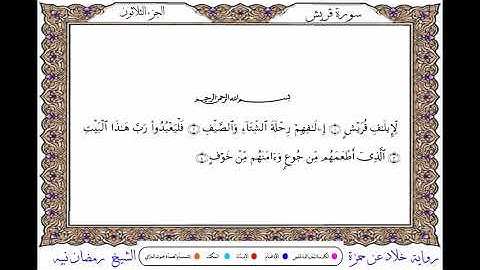 سورة قريش
الجزء الثلاثون
بسم الله الرحمن الرحيم
لِإِيلَٰفِ قُرَيْشٍ ۝١ إِۦلَٰفِهِمْ رِحْلَةَ ٱلشِّتَآءِ وَٱلصَّيْفِ ۝٢ فَلْيَعْبُدُوا۟ رَبَّ هَٰذَا ٱلْبَيْتِ
۝٣ ٱلَّذِىٓ أَطْعَمَهُم مِّن جُوعٍ وَءَامَنَهُم مِّنْ خَوْفٍۭ ۝٤
رواية خلاد عن حمزة
الشيخ رمضان نبيه